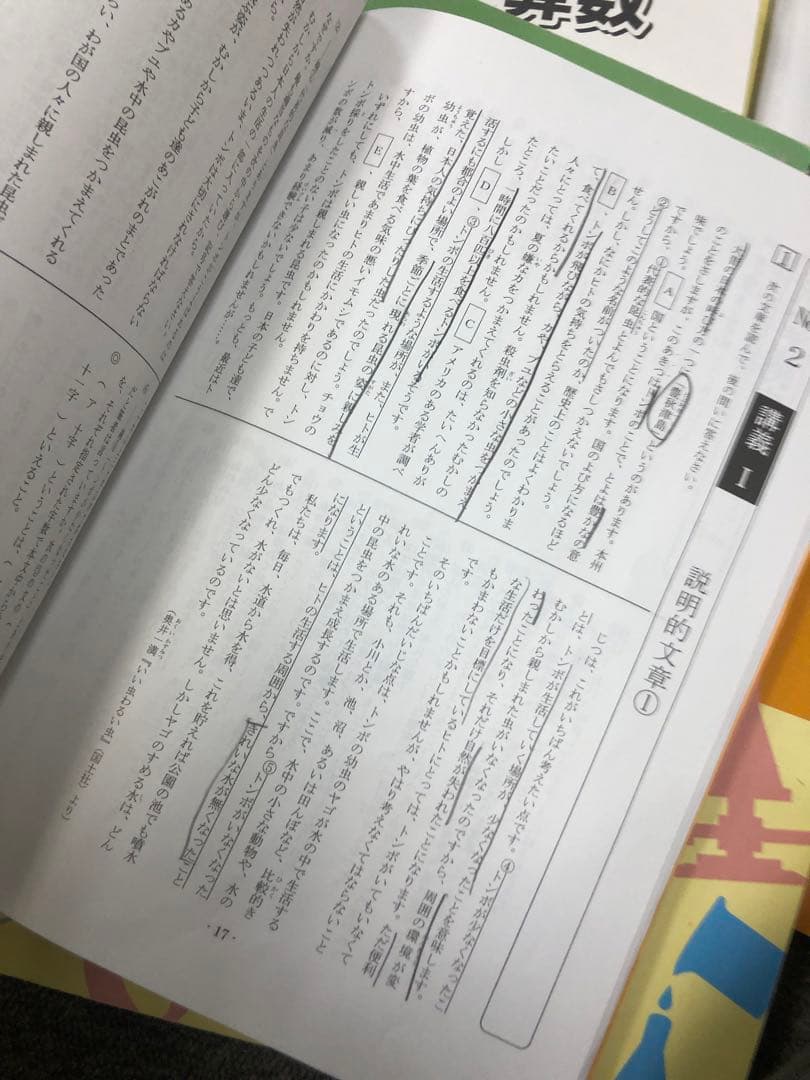 算数
No.2 講義Ⅰ 説明的文章①
1 次の文章を読んで、後の問いに答えなさい。
大昔の日本の呼び名の一つに、豊秋津島というのがあります。本州
のことをさしますが、このあきつはトンボのことで、とよは豊かなの意
味でしょう。
ですから、 A 国ということになります。国のよび方になるほど
①代表的な昆虫とよんでもさしつかえないでしょう。
②どうしてこのような名前がついたのか、歴史上のことはよくわかりま
せん。しかし、なにかヒトの気持ちをとらえることがあったのでしょう。
B 、トンボが飛びながら、カや、ブユなどの小さな虫をつかまえ
て、食べてくれるからかもしれません。殺虫剤を知らなかったむかしの
人々にとっては、夏の嫌なカをつかまえてくれるのは、たいへんありが
たいことだったのかもしれません。 C アメリカのある学者が調べ
たところ、一時間に八百匹以上を食べるトンボがいるそうです。
しかし D ③トンボの生活するような場所が、また、ヒトが生
活するにも都合のよい場所で、季節ごとに現れる昆虫の姿に親しみを
覚えた、日本人の気持ちにぴったりした虫だったのでしょう。チョウの
幼虫が、植物の葉を食べる気味の悪いイモムシであるのに対し、トン
ボの幼虫は、水中生活であまりヒトの生活にかかわりを持ちません。で
すから、 E 、親しい虫になったのかもしれません。
いずれにしても、トンボは親しまれる昆虫です。日本の子ども達で、
トンボ採りをしたことのない人は少ないでしょう。もっとも、最近はト
ンボの数が減り、あまり経験できないかもしれませんが……。
じつは、これがいちばん考えたい点です。④トンボが少なくなったこ
とは、トンボが生活していく場所が、少なくなったことを意味します。
むかしから親しまれた虫がいなくなったのですから、周囲の環境が変
わったことになり、それだけ自然が失われたことになります。ただ便利
な生活だけを目標にしているヒトにとっては、トンボがいてもいなくて
もかまわないことかもしれませんが、やはり考えなくてはならないこと
です。
そのいちばんだいじな点は、トンボの幼虫のヤゴが水の中で生活する
ことです。それも、小川とか、池、沼、あるいは田んぼなど、比較的き
れいな水のある場所で生活します。ここで、水中の小さな動物や、水の
中の昆虫をつかまえ成長するのです。ですから⑤トンボがいなくなった
ということは、ヒトの生活する周囲から、きれいな水が無くなったこと
になります。
私たちは、毎日、水道から水を得、これを貯えれば公園の池でも噴水
でもつくれ、水がないとは思いません。しかしヤゴのすめる水は、どん
どん少なくなっているのです。
（奥井一満『いい虫わるい虫』（国土社）より）
・17・
らい、わが国の人々に親しまれた昆虫
めるカやブユや水中の昆虫をつかまえてくれる
むかしから子ども達のあこがれのまとであった